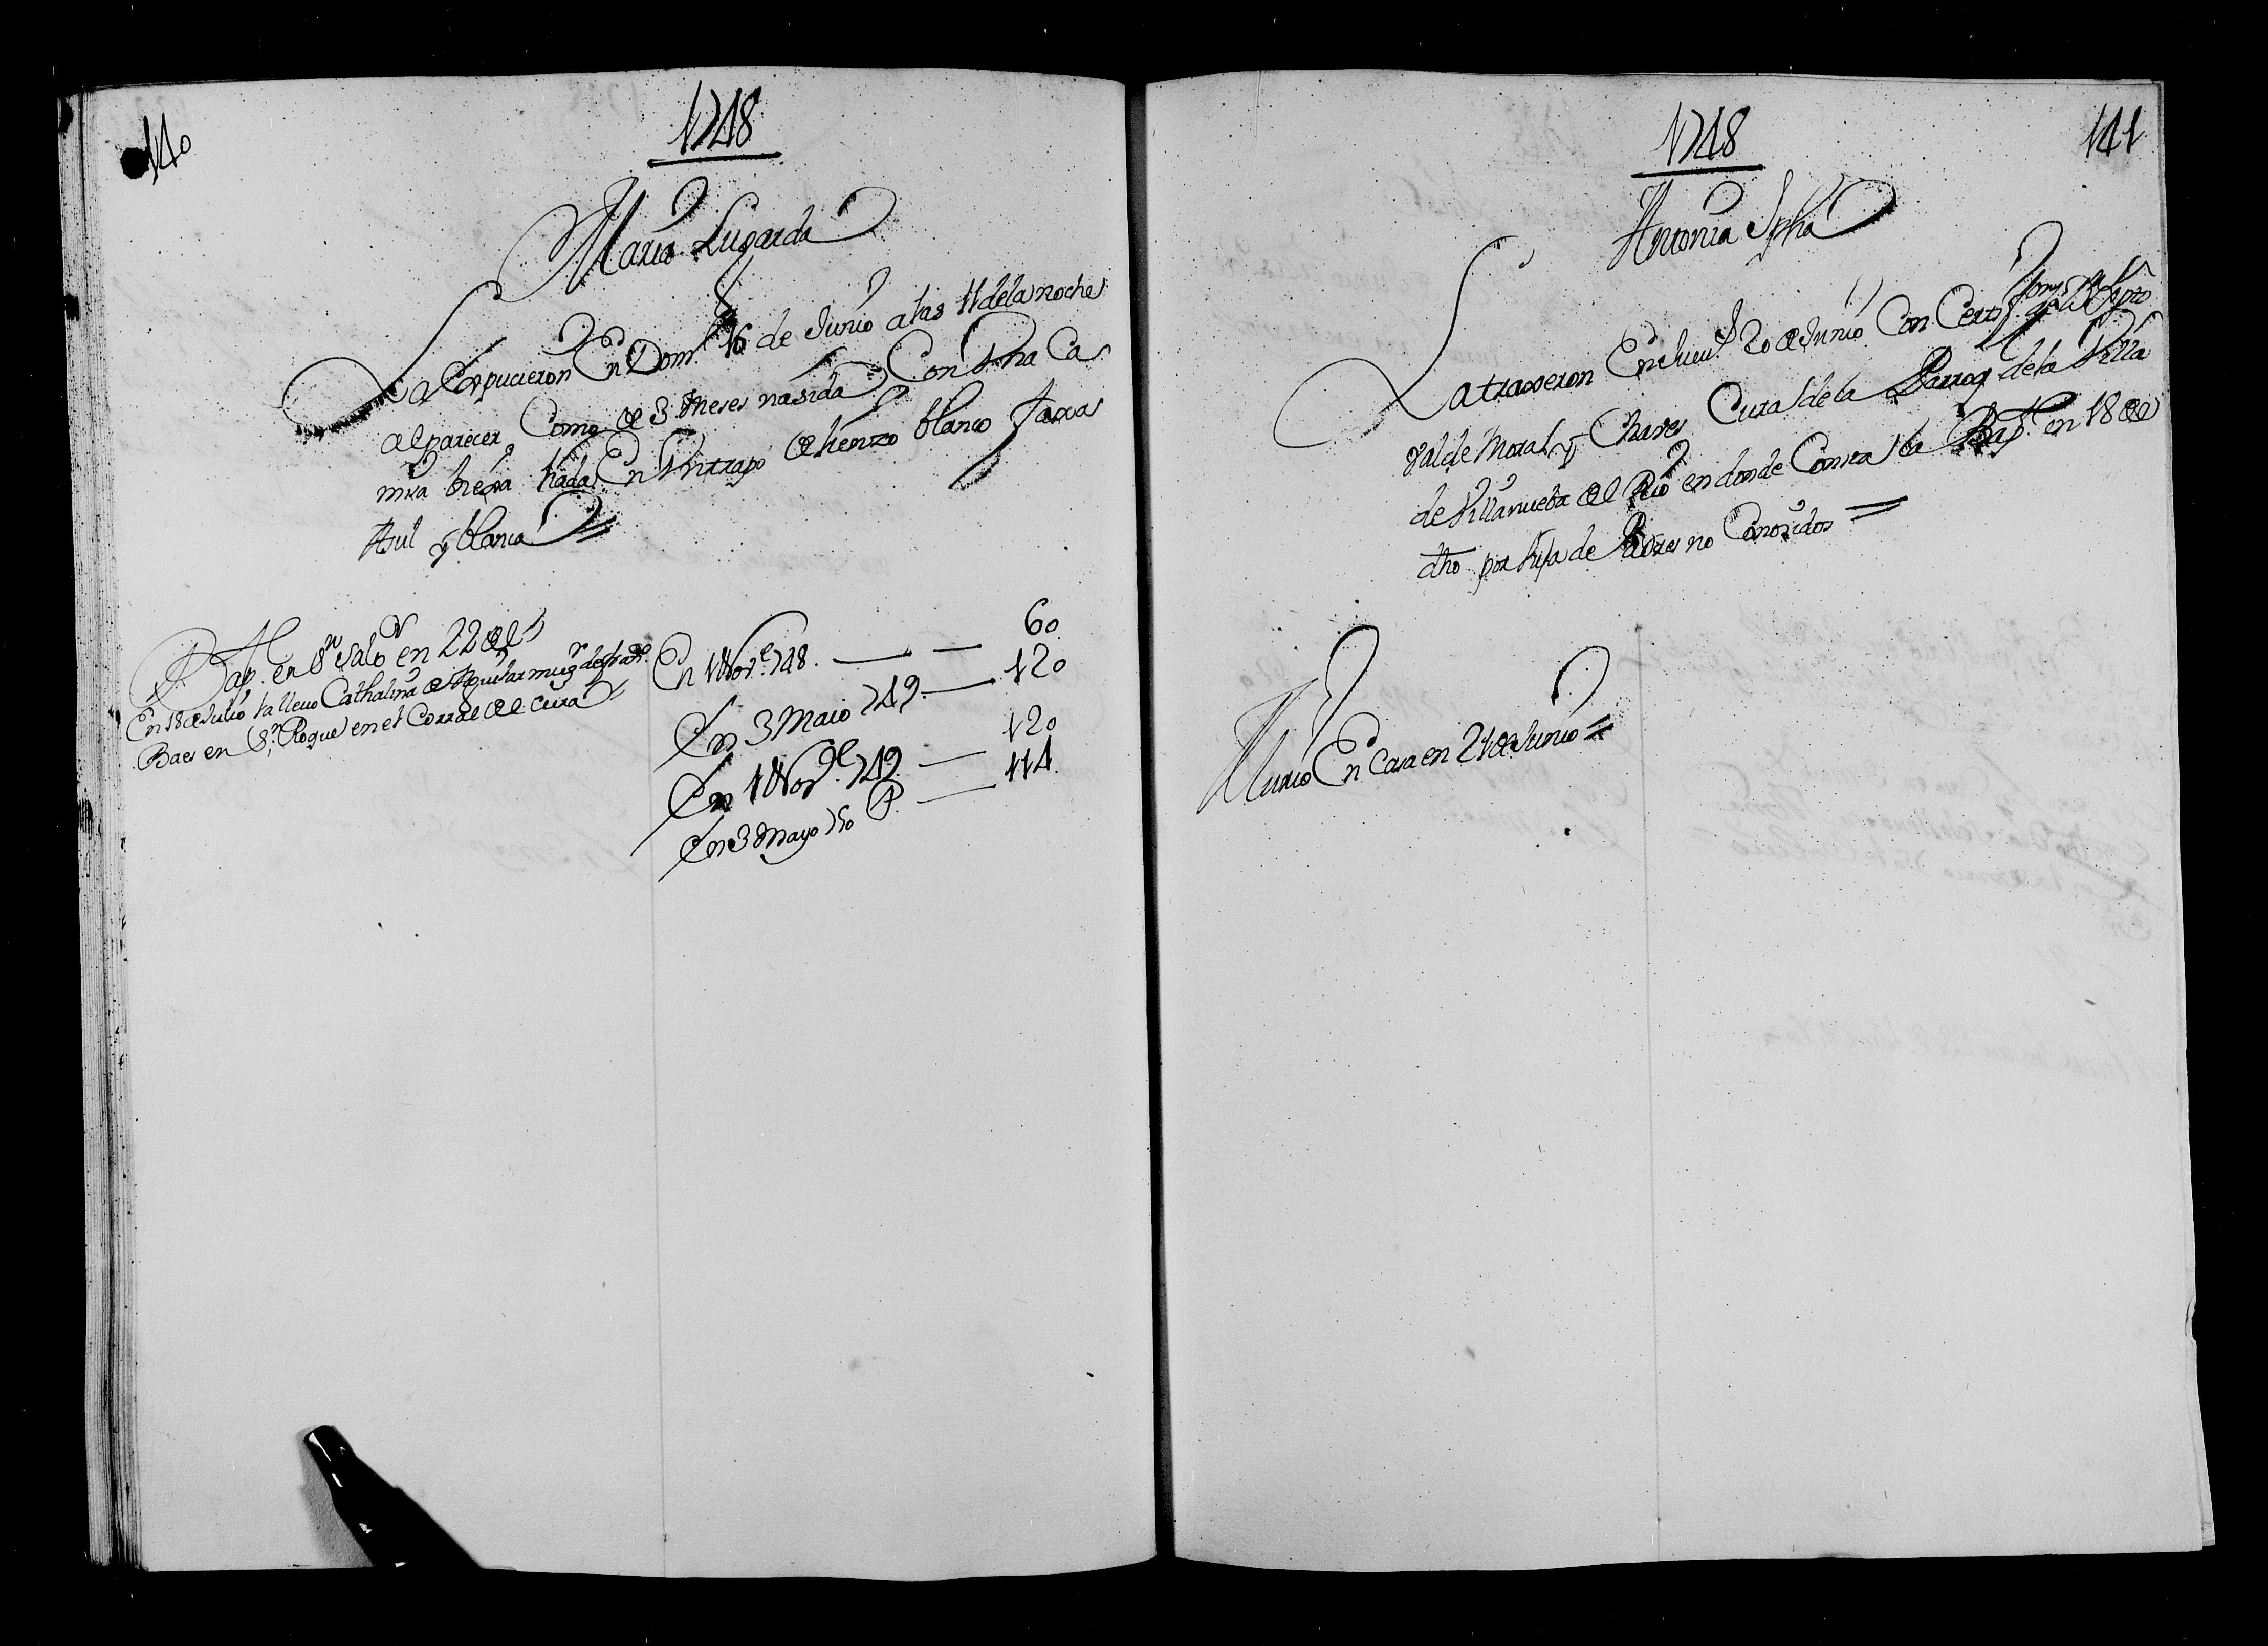 140
1748
Maria Lugarda
La Expucieron En Dom.º 16 de Junio a las 11 de la noche
al parecer Como de 3 meses nasida Con Una Ca
misa bieja liada En Un trapo de lienzo blanco faxa
Asul y blanca
Bap.da en S.n Salv.r en 22 del
En 18 de Julio la llevo Cathalina de Aguilar mug.r de
Baes en S.n Roque en el Corral del Cura
En 1 Nov.e 748. 60
En 3 Maio 749. 120
En 1 Nov.e 749. 120
En 3 Mayo 750 P. 114.
1748
141
Antonia Jpha
La traxeron En Juev.s 20 de Junio Con Certf.n de
Valde Moral y Chaves Cura de la Parroq.l de la Villa
de Villanueba del Rio en donde Consta la Bap.on en 18 del
dho por hija de Padres no Conosidos
Murio En Casa en 21 de Junio